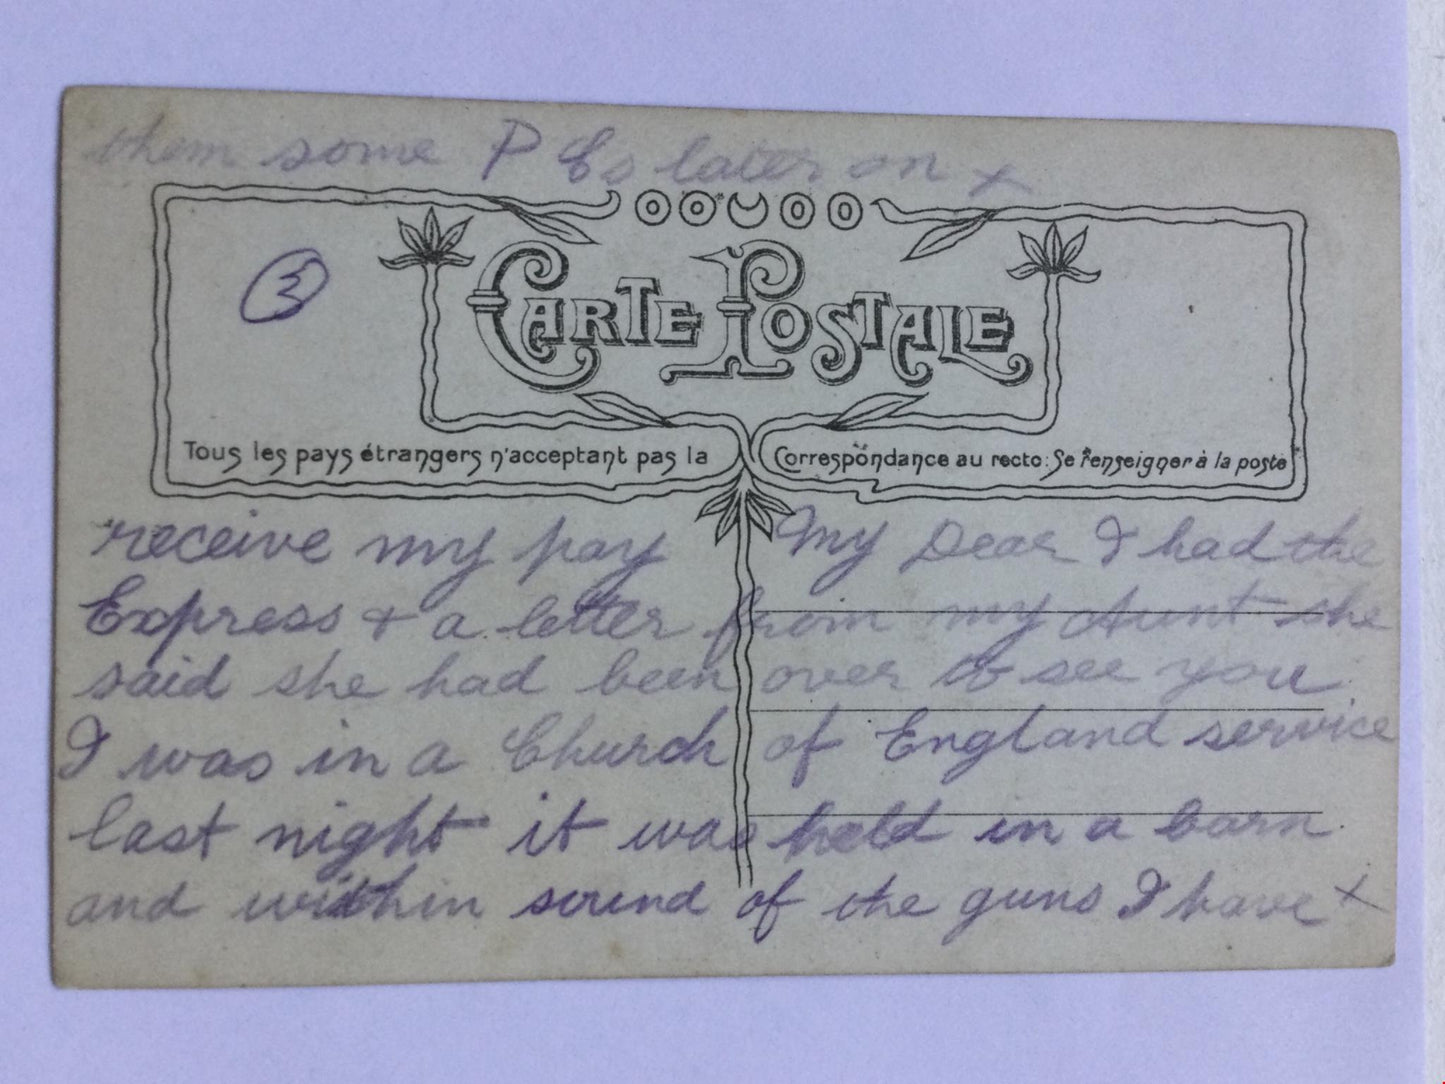 them some P Cs later on x
3
CARTE POSTALE
Tous les pays étrangers n'acceptant pas la Correspondance au recto: Se renseigner à la poste
receive my pay My Dear I had the
Express & a letter from my Aunt she
said she had been over to see you
I was in a Church of England service
last night it was held in a barn.
and within sound of the guns I have x